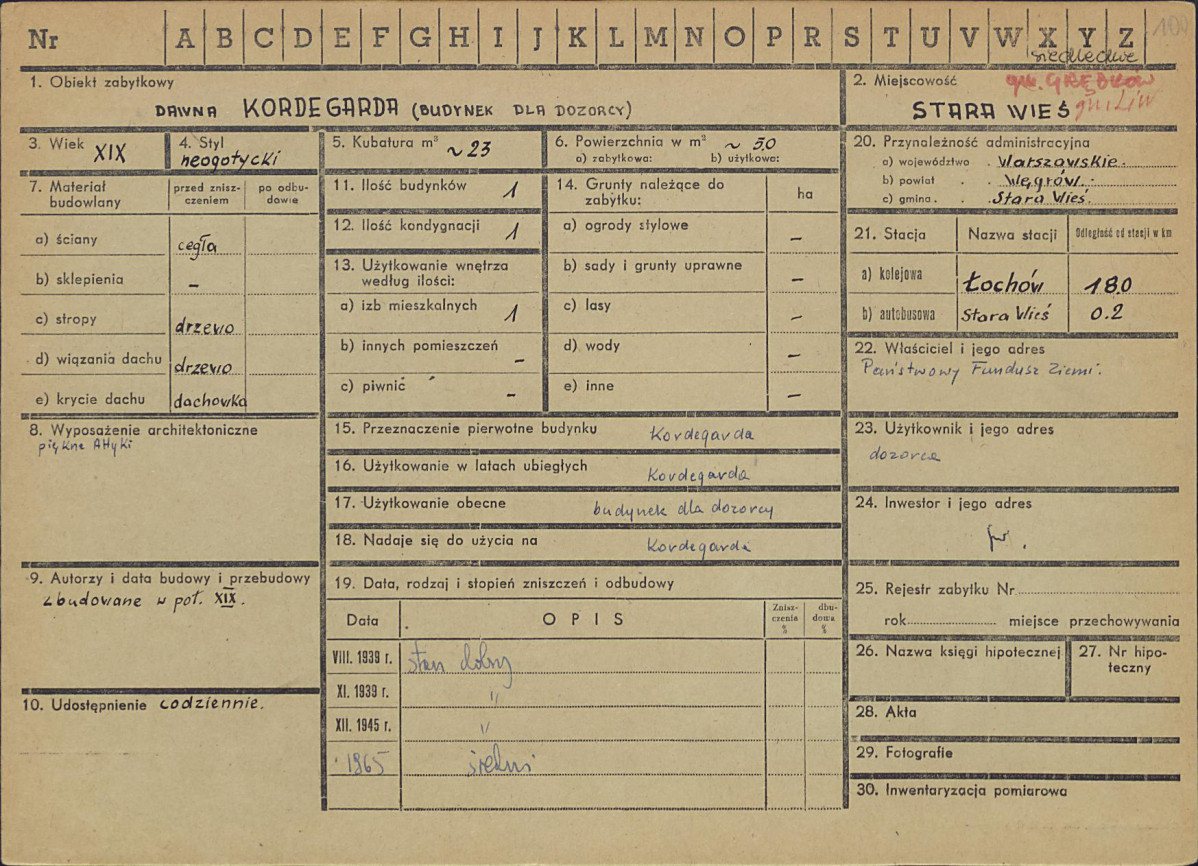 Nr A B C D E F G H I J K L M N O P R S T U V W X Y Z 100
siedleckie
1. Obiekt zabytkowy
DAWNA KORDEGARDA (BUDYNEK DLA DOZORCY)
2. Miejscowość gm. GRĘBKÓW
STARA WIEŚ gm Liw
3. Wiek XIX
4. Styl neogotycki
5. Kubatura m³ ~23
6. Powierzchnia w m² ~ 50
a) zabytkowa: b) użytkowa:
7. Materiał budowlany
przed zniszczeniem
po odbudowie
a) ściany cegła
b) sklepienia –
c) stropy drzewo
d) wiązania dachu drzewo
e) krycie dachu dachówka
8. Wyposażenie architektoniczne
piękne Attyki
9. Autorzy i data budowy i przebudowy
Zbudowane w poł. XIX.
10. Udostępnienie codziennie.
11. Ilość budynków 1
12. Ilość kondygnacji 1
13. Użytkowanie wnętrza
według ilości:
a) izb mieszkalnych 1
b) innych pomieszczeń –
c) piwnic –
14. Grunty należące do
zabytku: ha
a) ogrody stylowe –
b) sady i grunty uprawne –
c) lasy –
d) wody –
e) inne –
15. Przeznaczenie pierwotne budynku Kordegarda
16. Użytkowanie w latach ubiegłych Kordegarda
17. Użytkowanie obecne budynek dla dozorcy
18. Nadaje się do użycia na Kordegarda
19. Data, rodzaj i stopień zniszczeń i odbudowy
Data OPIS Zniszczenia % dbudowa %
VIII. 1939 r. stan dobry
XI. 1939 r. "
XII. 1945 r. "
1965 średni
20. Przynależność administracyjna
a) województwo . Warszawskie.
b) powiat . . Węgrów.
c) gmina . . Stara Wieś.
21. Stacja Nazwa stacji Odległość od stacji w km
a) kolejowa Łochów 18.0
b) autobusowa Stara Wieś 0.2
22. Właściciel i jego adres
Państwowy Fundusz Ziemi.
23. Użytkownik i jego adres
dozorca
24. Inwestor i jego adres
25. Rejestr zabytku Nr
rok miejsce przechowywania
26. Nazwa księgi hipotecznej
27. Nr hipoteczny
28. Akta
29. Fotografie
30. Inwentaryzacja pomiarowa